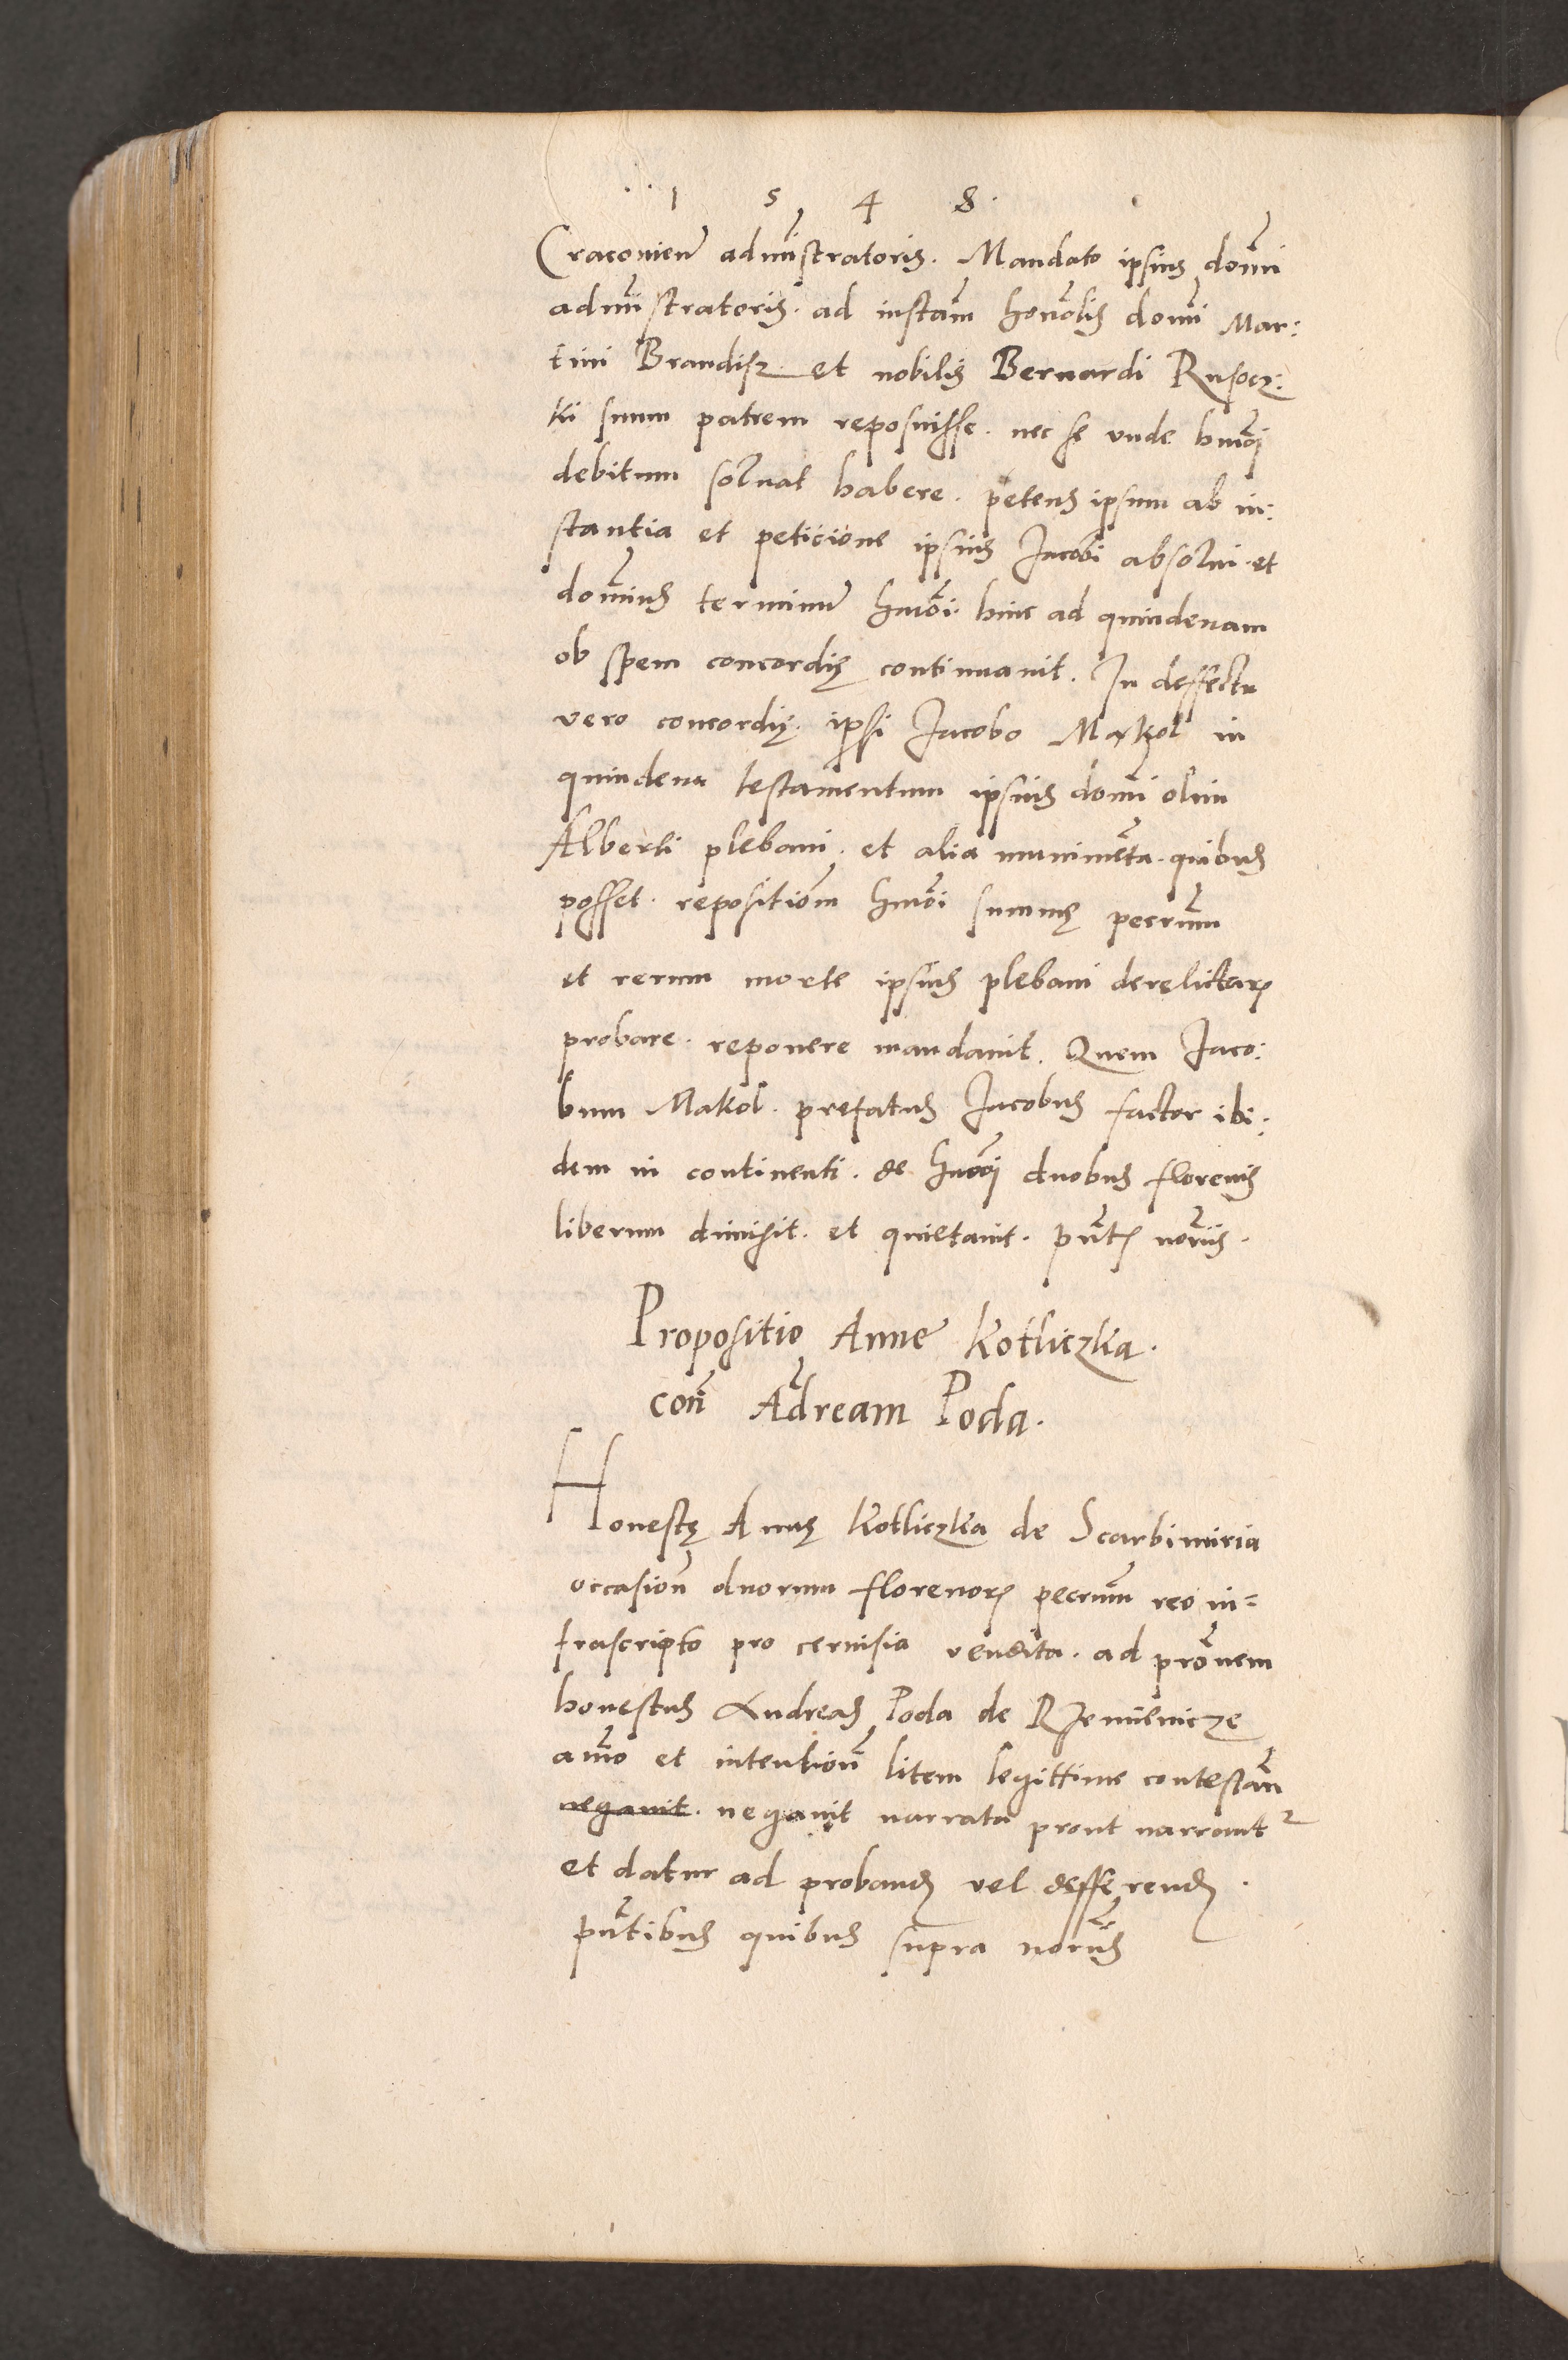 1 5 4 8.
Cracovien̄ admīstratoris. Mandato ipsius dom̄i
admīstratoris. ad instam̄ honol̄is dom̄i Mar:
tini Brandisz et nobilis Bernardi Rusocz:
ki suum patrem reposuisse. nec se unde hmōi
debitum solvat habere. petens ipsum ab in:
stantia et peticione ipsius Jacobi absolui. et
dom̄inus terminū hmōi. hinc ad quindenam
ob spem concordię continuavit. In deffectu
vero concordię. ipsi Jacobo Makol in
quindena testamentum ipsius dom̄i olim
Alberti plebani. et alia munimēta. quibus
posset. repositiōm hmōi summę pecnūm
et rerum morte ipsius plebani derelictarꝫ
probare. reponere mandavit. Quem Jaco:
bum Makol. prefatus Jacobus factor ibi:
dem in continenti. de hmōi duobus florenis
liberum dimisit. et quietavit. pn̄tꝫ nōrīis.
Propositio Anne Kotliczka.
con̄ Ādream Poda.
Honestę Annę Kotliczka de Scarbimiria
occasion̄ duorum florenorꝫ pecnūm reo in=
frascripto pro cervisia vendita. ad prōnem
honestus Andreas Poda de Rzemienicze
anīo et intention̄ litem legittime contestan̄
negavit. negavit narrata prout narrant2
et datur ad proband̄ vel defferend̄.
pn̄tibus quibus supra nōrīis